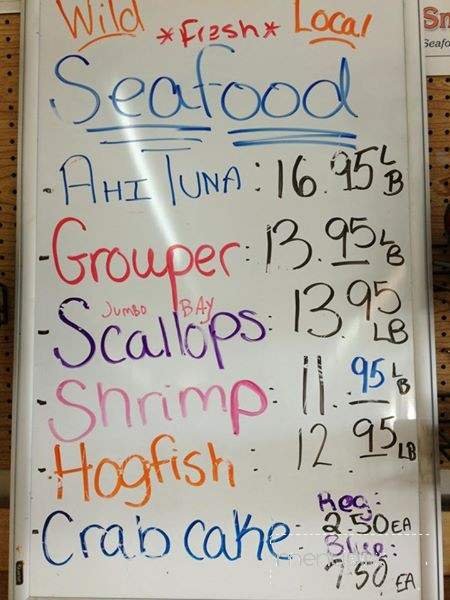 Wild *Fresh* Local
Seafood
- AHI TUNA: 16.95 LB
- Grouper: 13.95 LB
Jumbo BAY
- Scallops: 13.95 LB
- Shrimp: 11.95 LB
- Hogfish: 12.95 LB
- Crab cake: Reg: 2.50 EA
Blue: 7.50 EA
Seafo